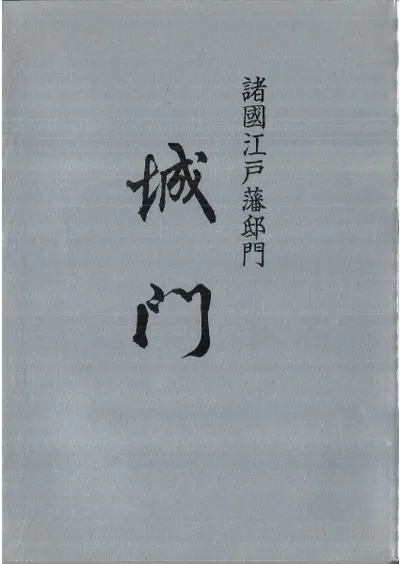 諸國江戸藩邸門
城門